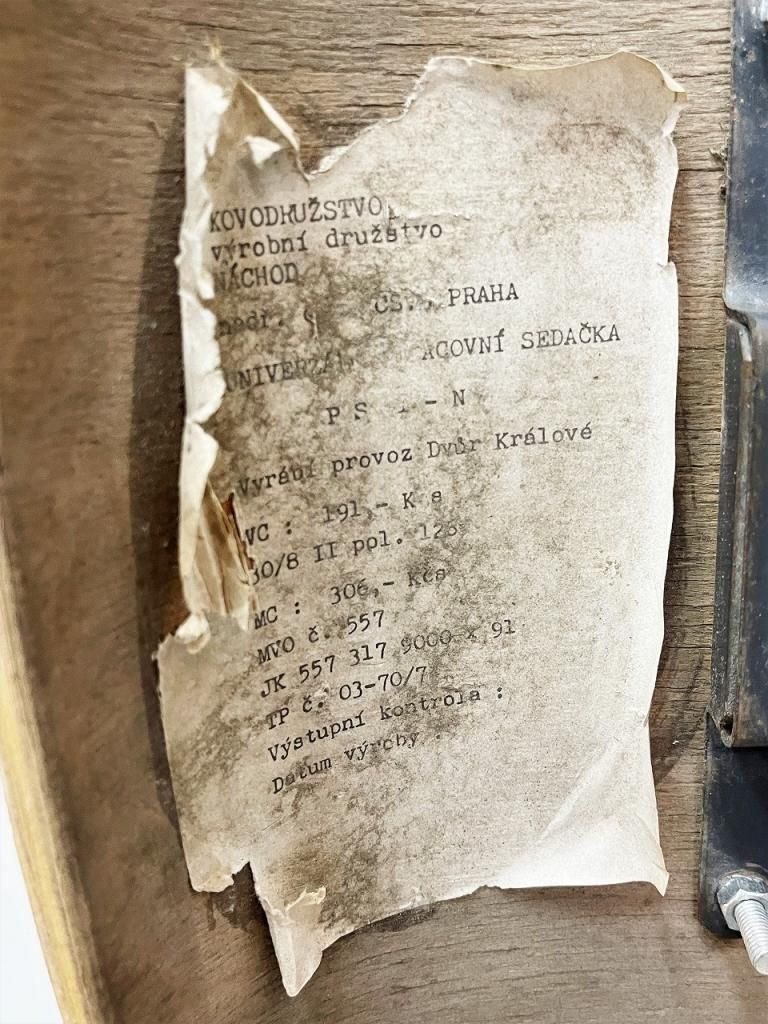 KOVODRUŽSTVO
výrobní družstvo
NÁCHOD
PRAHA
SEDAČKA
P S - N
Vyrábí provoz Dvůr Králové
VC : 191,- Kčs
30/8 II pol.
MC : 306,- Kčs
MVO č. 557
JK 557 317 9000 x 91
TP č. 03-70/7
Výstupní kontrola :
Datum výroby :